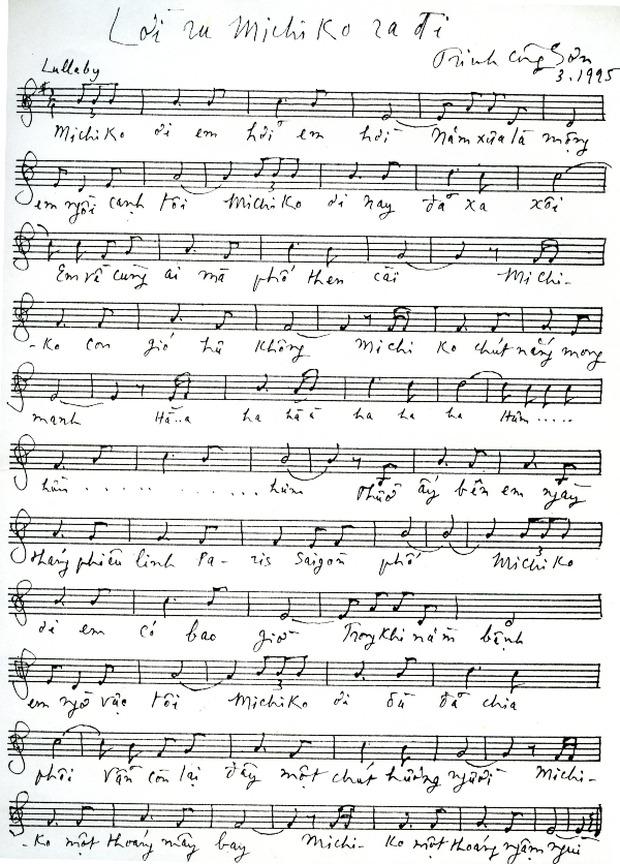 Lời ru Michiko ra đi
Trịnh Công Sơn
3.1995
Lullaby
3
Michiko ơi em hỡi em hỡi Nằm xưa là mộng
3
em ngồi cạnh tôi Michiko ơi nay đã xa xôi
Em về cùng ai mà phố then cài Michi-
-Ko con gió hư không Michi Ko chút nắng mong
manh Hà..a ha hà à ha ha ha Hùm .....
hùm . . . . . . . . . . . . hùm Thuở ấy bên em ngày
tháng phiêu linh Pa - ris Saigon phố Michiko
3
ơi em có bao giờ Trong khi nằm bệnh
em ngỡ vực tôi Michiko ơi dù đã chia
3
phôi Vẫn còn lại đây một chút hương người Michi-
-Ko một thoáng mây bay Michi- Ko một thoáng ngậm ngùi